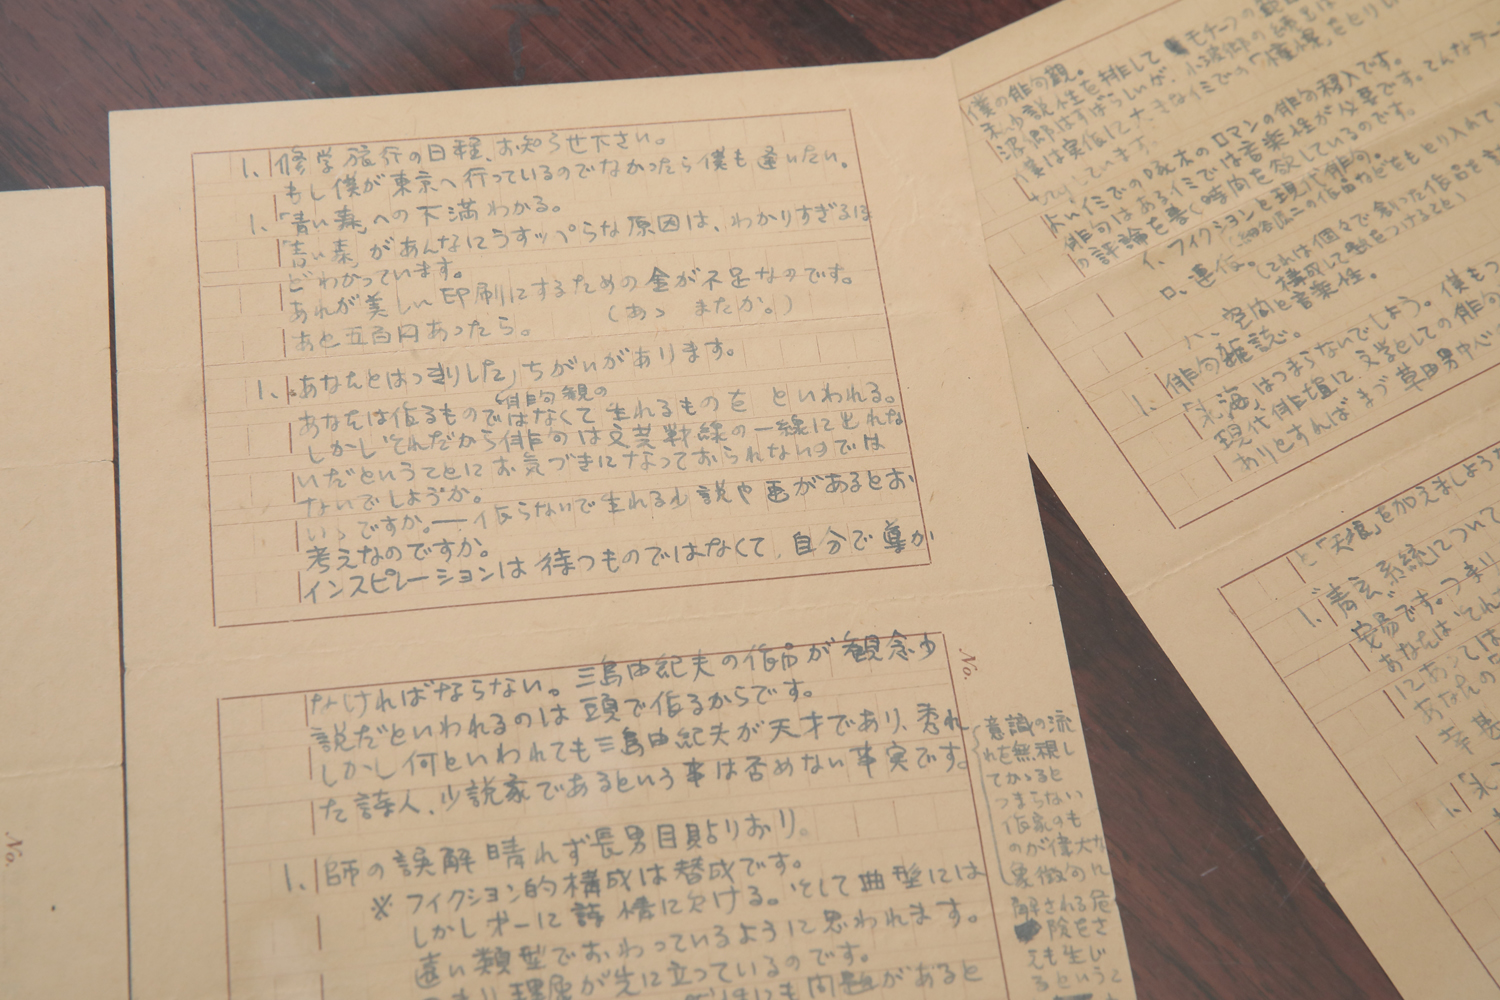 1、修学旅行の日程、お知らせ下さい。
もし僕が東京へ行っているのでなかったら僕も逢いたい。
1、「青い森」への不満わかる。
「青い森」があんなにうすっぺらな原因は、わかりすぎるほ
どわかっています。
あれが美しい印刷にするための金が不足なのです。
あと五百円あったら。 (あゝ またか。)
1、あなたとはっきりした」ちがいがあります。
「俳句観の
あなたは作るものではなくて生れるものを といわれる。
しかしそれだから俳句は文芸戦線の一線に出れな
いだということにお気づきになっておられないのでは
ないでしょうか。
いゝですか。―作らないで生れる小説や画があるとお
考えなのですか。
インスピレーションは待つものではなくて、自分で導か
なければならない。三島由紀夫の作品が観念小
説だといわれるのは頭で作るからです。
しかし何といわれても三島由紀夫が天才であり、秀れ
た詩人、小説家であるという事は否めない事実です。
1、師の誤解晴れず長男目貼りおり。
※フィクション的構成は賛成です。
しかし才一に詩情に欠ける。そして典型には
遠い類型でおわっているように思われます。
理屈が先に立っているのです。
にも問題があると
No.
意識の流
れを無視し
てかゝると
つまらない
作家のも
のが偉大な
象徴句れ
解される危
険をさ
えも生じ
るという
僕の俳句観。
小説性を排して
僕は実作に大きなイミでの「憧憬」をとり
しています。
よいイミでの啄木のロマンの俳句移入です。
俳句はあるイミでは音楽性が必要です。そんなテー
の評論を書く時間を欲しているのです。
イ、フィクションと現代俳句。
ロ、連作。(これは個々で創った作品を
構成して題をつけること)
ハ、空間と音楽性。
1、俳句雑誌。
「氷海」はつまらないでしょう。僕もつ
現代俳壇に文学としての俳句
ありとすればまづ草田男中心の
と「天狼」を加えましょうか
1、「青玄」系統について
安易です。つまり
あなたは「それ
にあっては
あなたの
1、「氷
No.